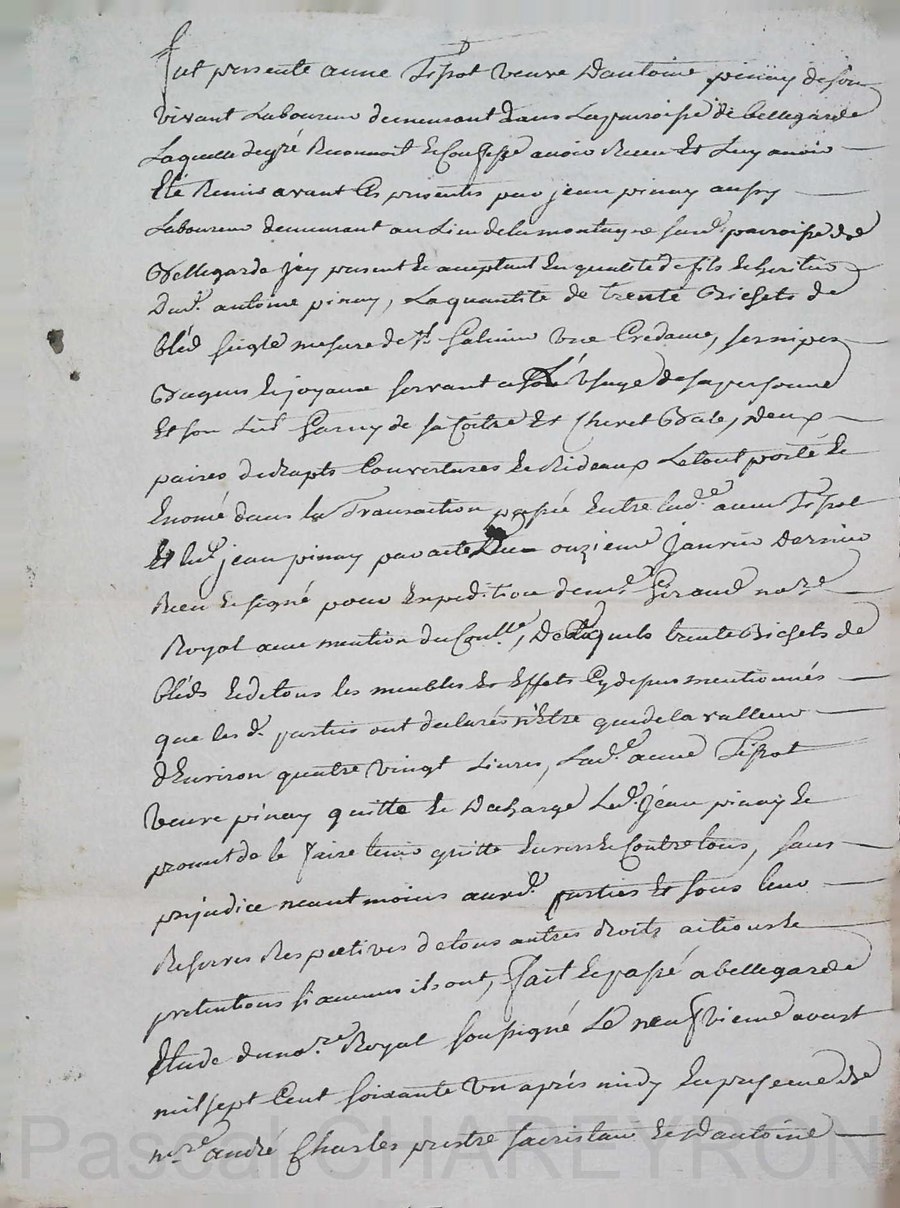 fut presente anne Tissot veuve D'antoine pinay de son
vivant Laboureur demeurant dans La parroisse de bellegarde
Laquelle de gré Reconnoit et Confesse avoir Receu Et Luy avoir
Eté Remis avant Ces presentes par jean pinay aussy
Laboureur demeurant au Lieu de la montagne susd. parroisse de
Bellegarde jcy present et aceptant En qualité de fils et heritier
Dud. antoine pinay, La quantité de trente Bichets de
bléd seigle mesure de st Galmier une Credance, ses nipes
Bagues et joyaux servant a L'usage de sa personne
Et son Lit Garny de sa Coitre Et Chevet Bale, deux
paires de draps Couvertures et Rideaux Le tout porté et
Enoncé dans la Transaction passée Entre lad.e anne Tissot
Et led. jean pinay par acte Du onzieme Janvier Dernier
Receu et signé pour Expedition de me. Giraud no.re
Royal avec mention du Conlle, Desquels trente Bichets de
bléds et de tous les meubles Et Effets Cy depus mentionnés
que les d. parties ont declarés n'Etre que de la valleur
d'Environ quatre vingt Livres, Lad.e anne Tissot
veuve pinay quitte et Decharge Led. jean pinay et
promet de le faire tenir quitte Envers et Contre tous, sans
prejudice neant moins auxd. parties Et sous leur
Reserves Respectives de tous autres droits actions et
pretentions si aucuns ils ont, fait et passé a bellegarde
Etude du no.re Royal soussigné Le neufvieme aoust
mil sept Cent soixante Un après midy En presence de
m.re andré Charles prestre sacristain et d'antoine
Pascal CHAREYRON